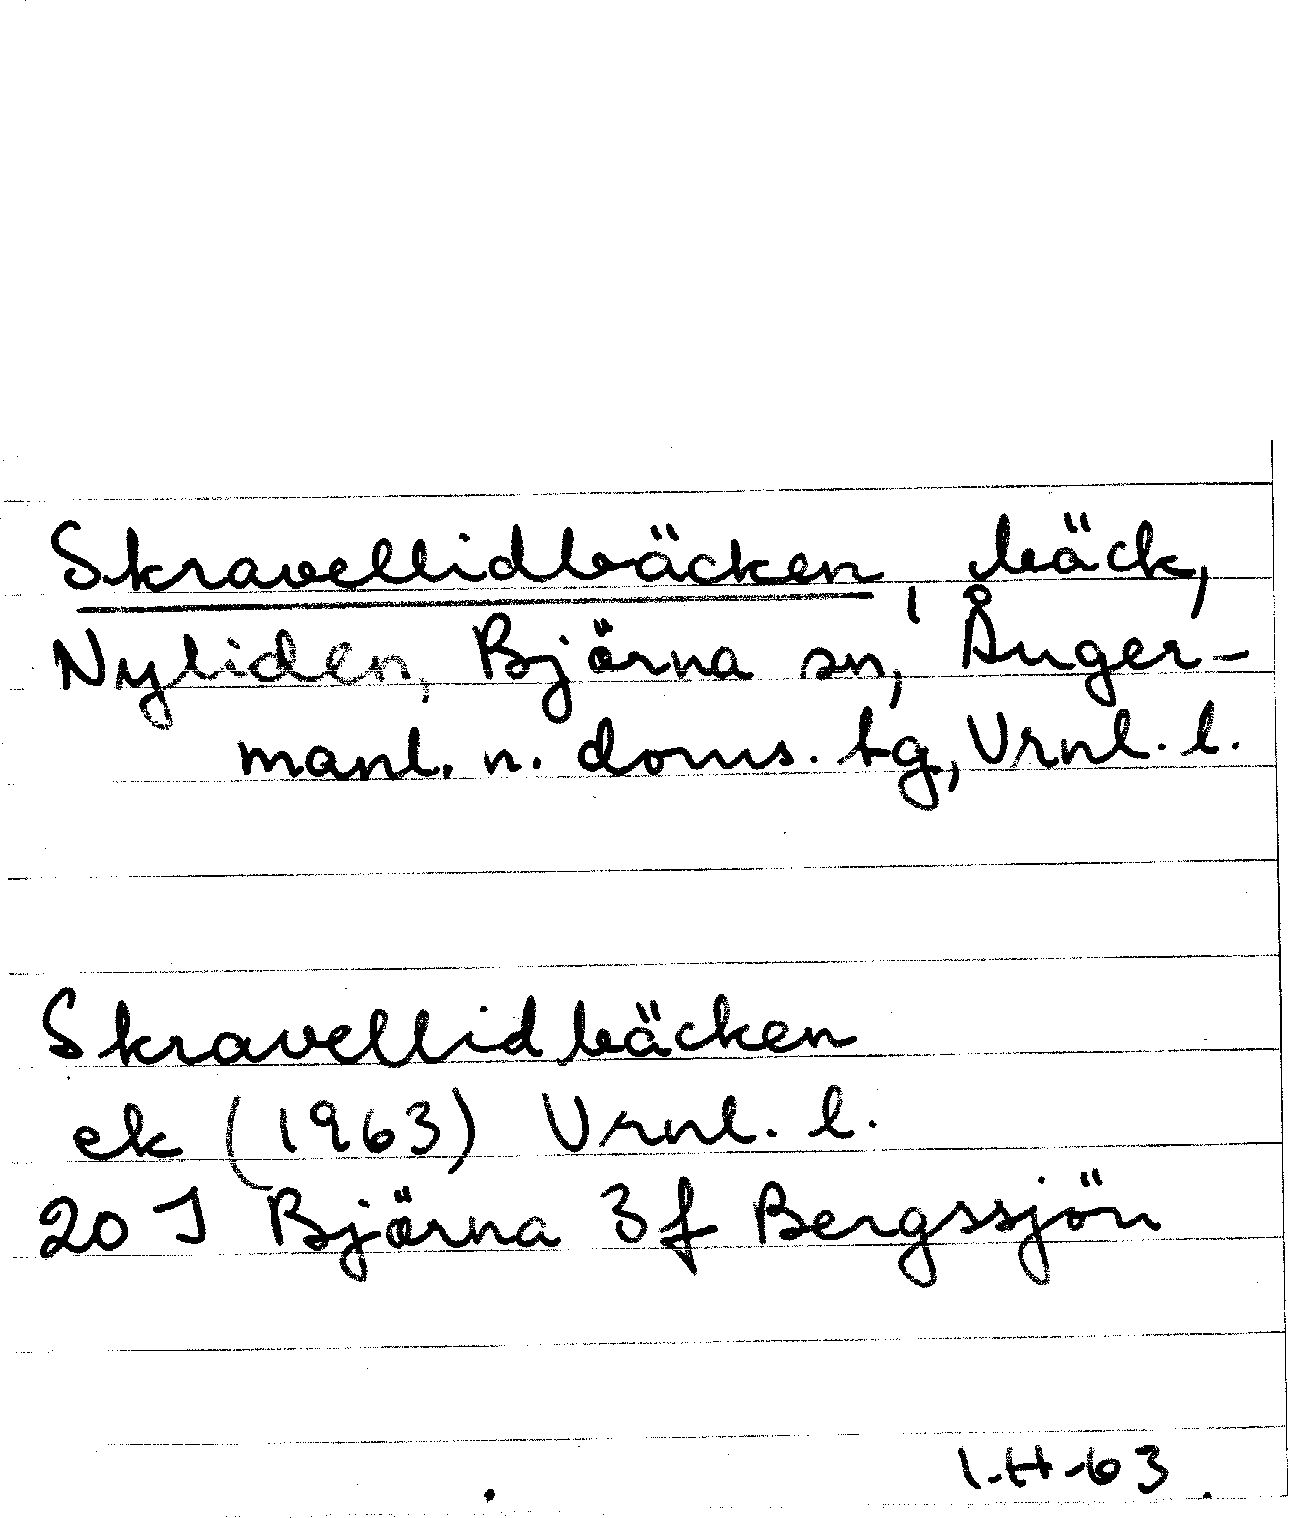 Skravellidbäcken, bäck,
Nyliden, Björna sn, Ånger-
manl. n. doms. tg, Vrnl. l.
Skravellidbäcken
ek (1963) Vrnl. l.
20 J Björna 3f Bergssjön
I.H-63